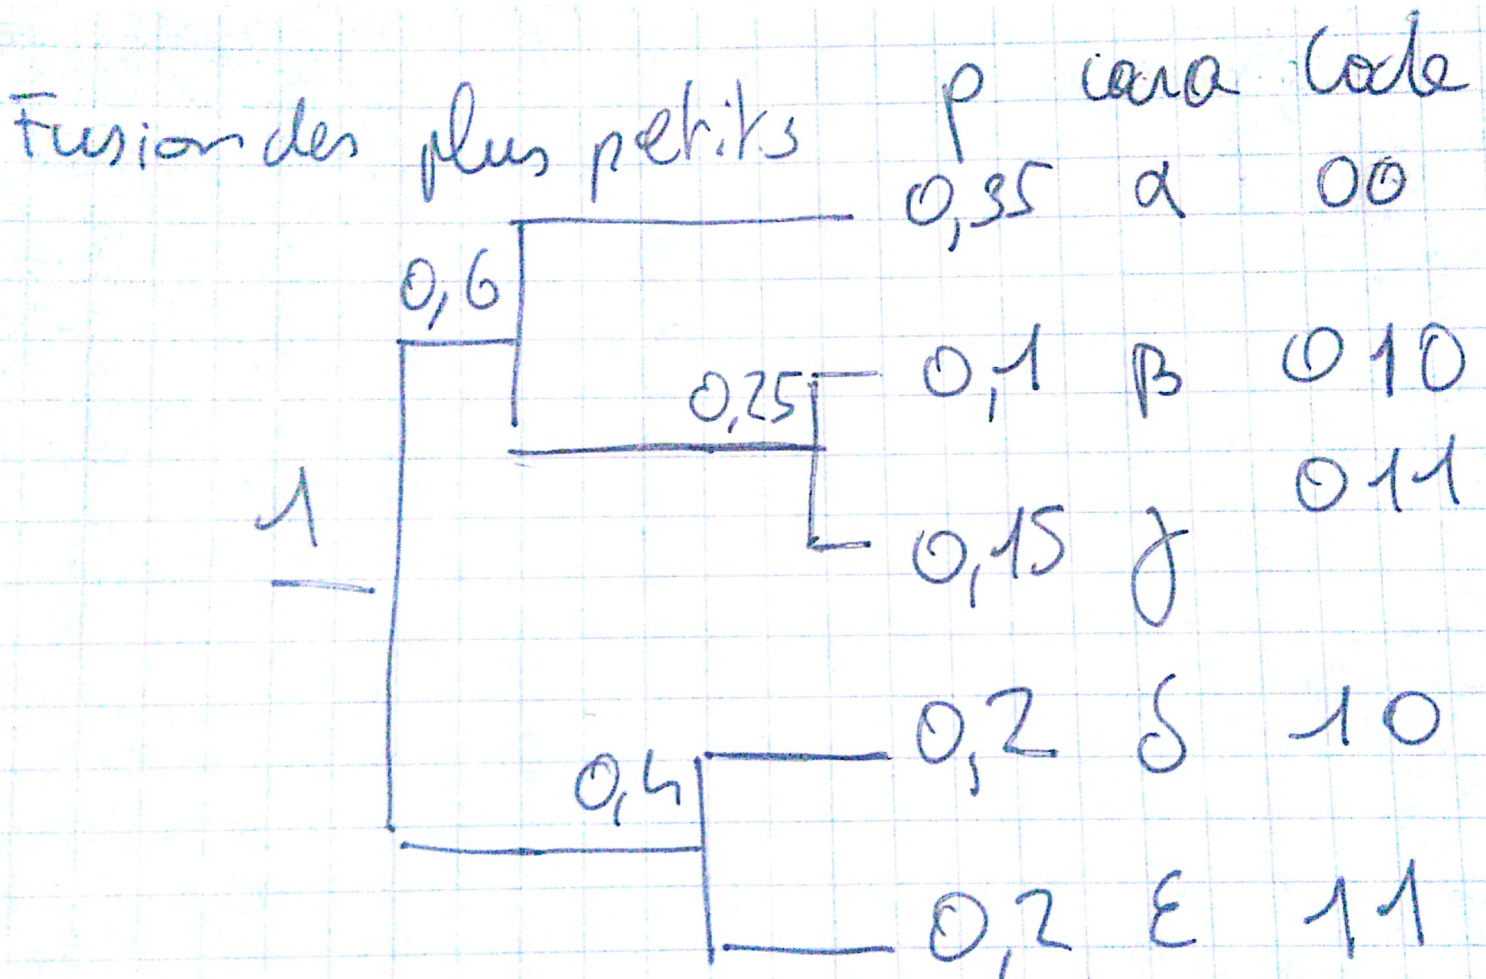 Fusion des plus petits p cara Code
0,35 α 00
0,6
0,1 β 010
0,25
011
1
0,15 γ
0,2 δ 10
0,4
0,2 ε 11